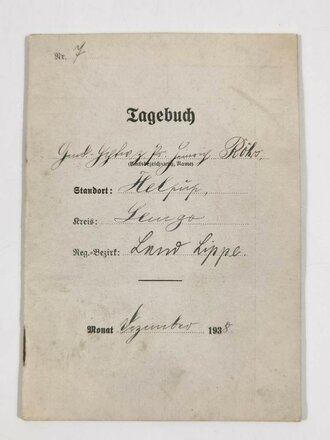 Nr. 7
Tagebuch
Röhr
(Amtsbezeichnung, Name)
Standort: Helpup,
Kreis: Lemgo
Reg.-Bezirk: Land Lippe.
Monat Dezember 1938